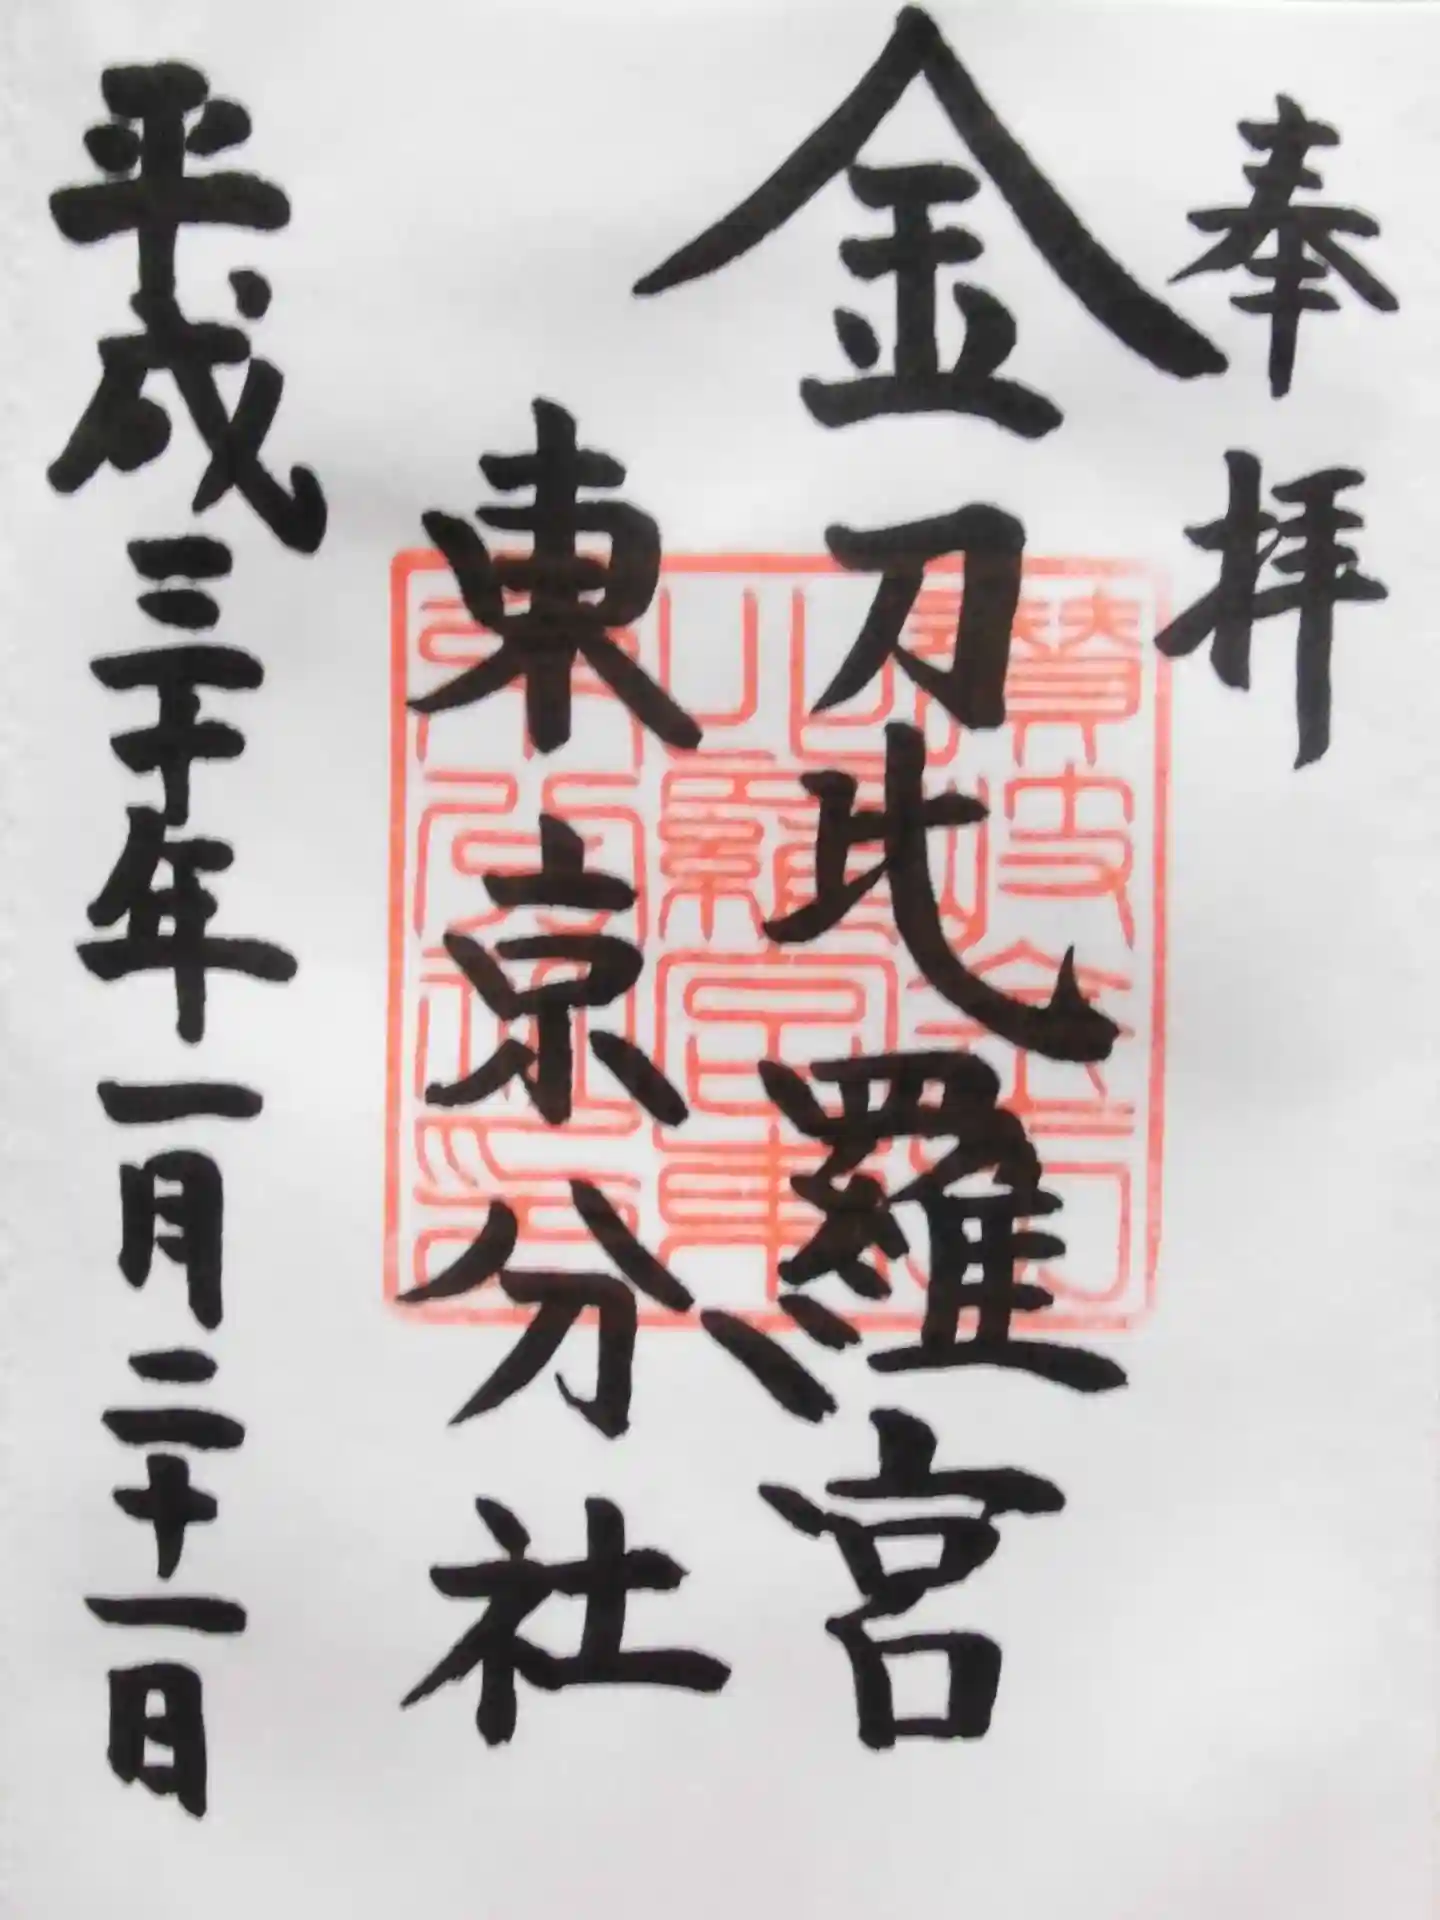 奉拝
金刀比羅宮
東京分社
平成三十年一月二十一日